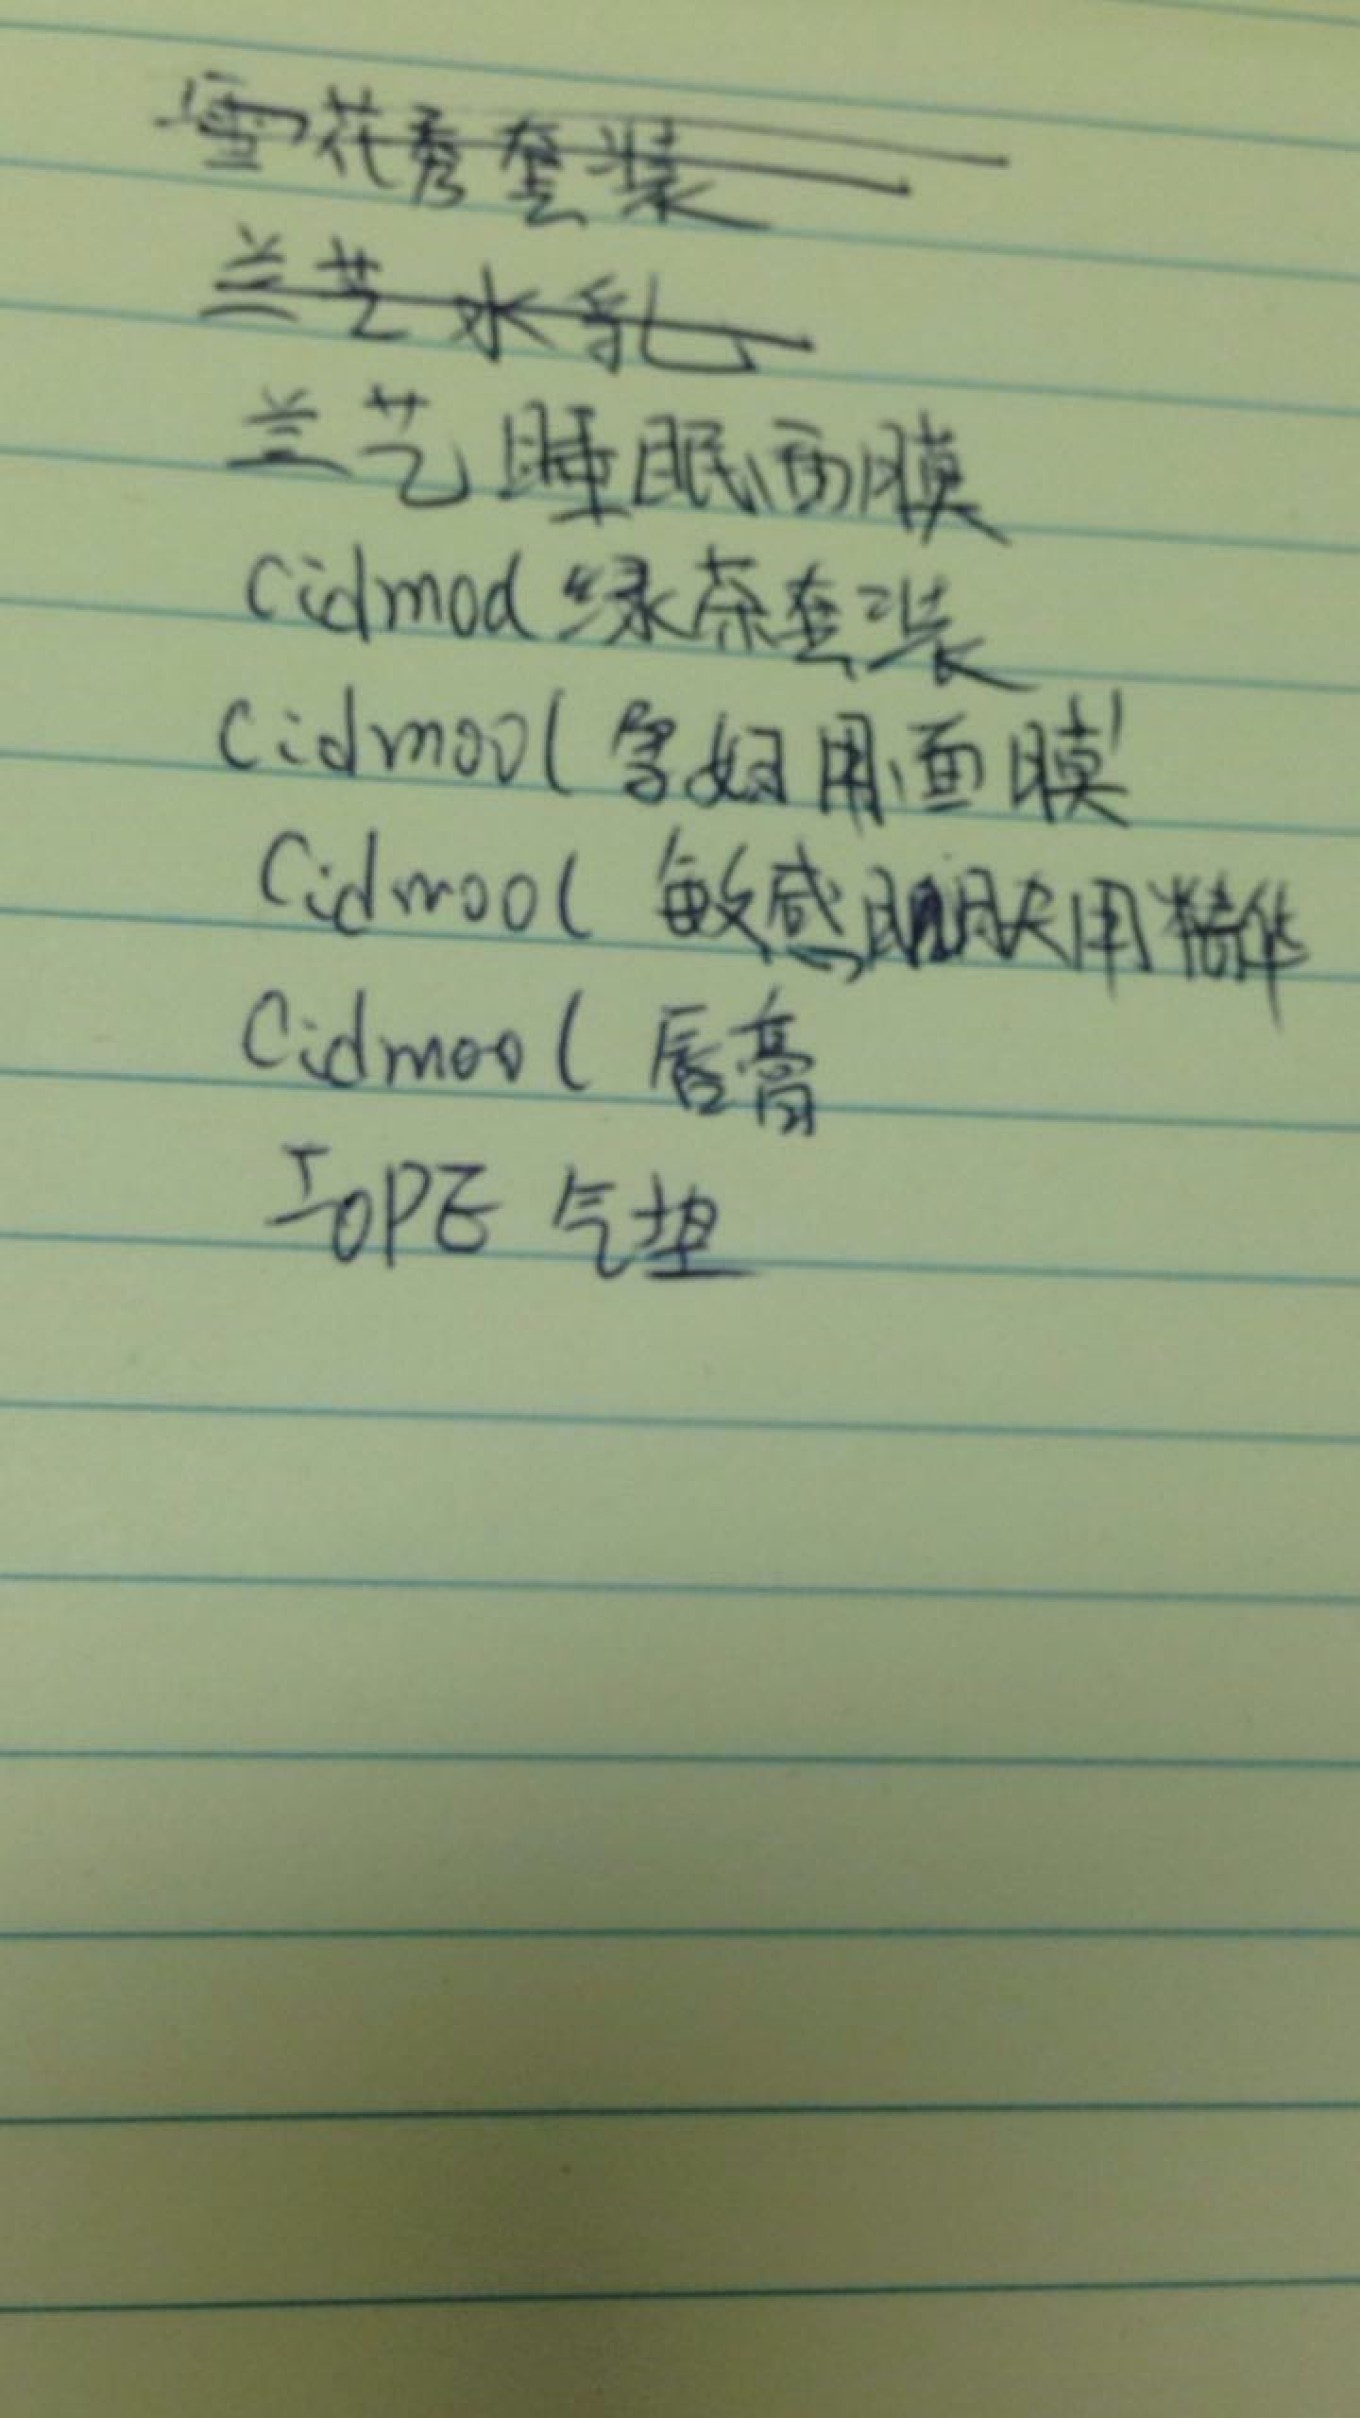 雪花秀套装
兰芝水乳
兰芝睡眠面膜
Cidmool 绿茶套装
Cidmool 孕妇用面膜
Cidmool 敏感肌肤用精华
Cidmool 唇膏
IOPE 气垫